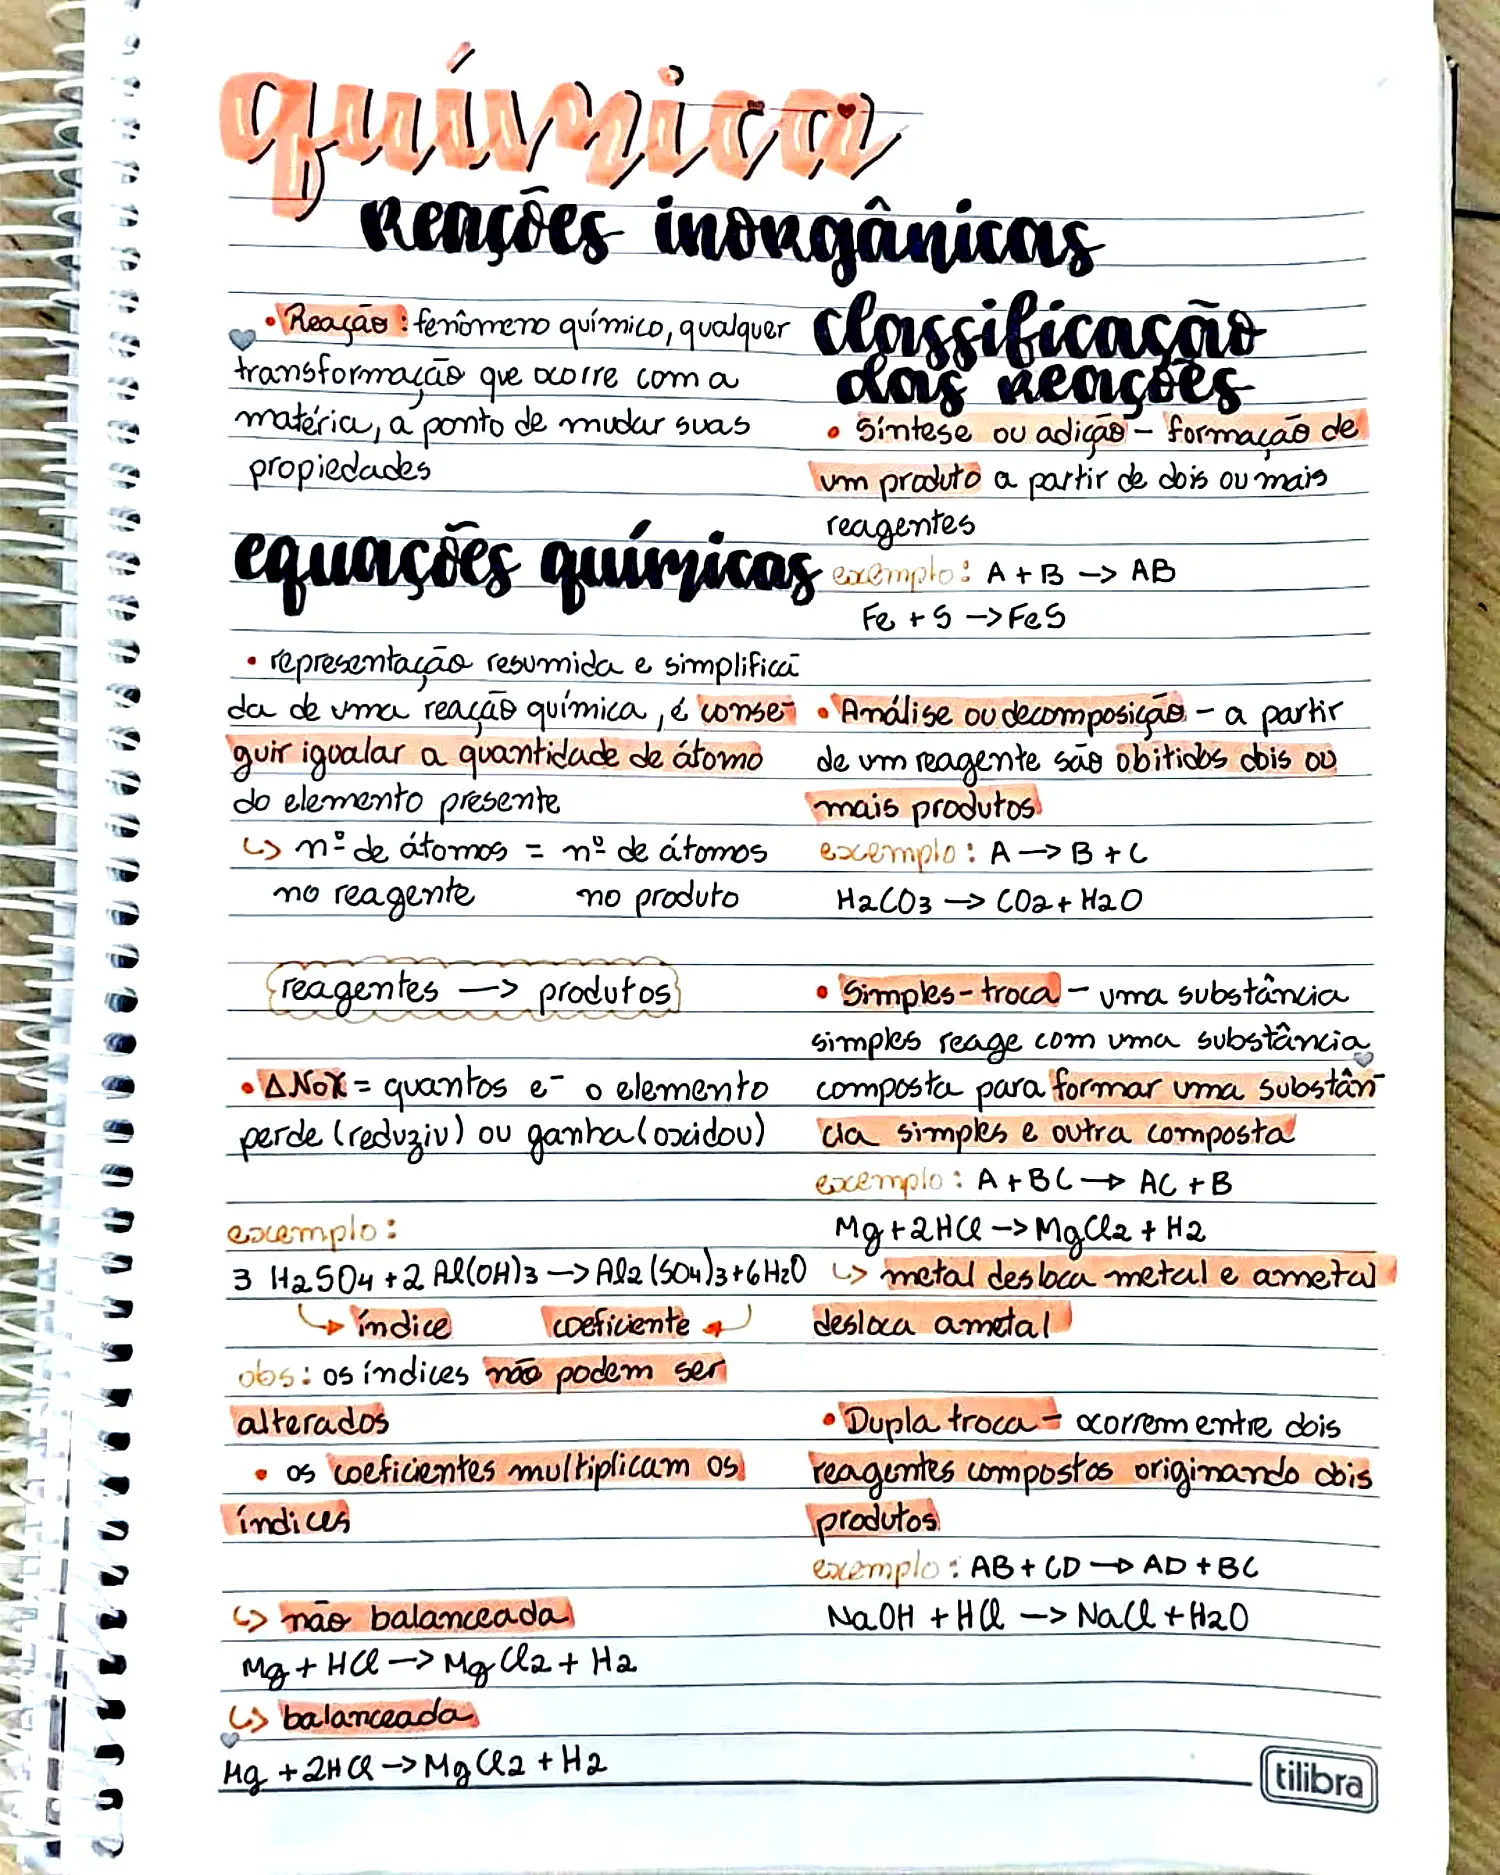 química
Reações inorgânicas
• Reação: fenômeno químico, qualquer
transformação que ocorre com a
matéria, a ponto de mudar suas
propiedades
equações químicas
• representação resumida e simplificā
da de uma reação química, é conse-
guir igualar a quantidade de átomo
do elemento presente
↳ nº de átomos = nº de átomos
no reagente no produto
reagentes —> produtos
• ΔNOX = quantos e⁻ o elemento
perde (reduziu) ou ganha (oxidou)
exemplo:
3 H2SO4 + 2 Al(OH)3 —> Al2(SO4)3 + 6H2O
índice coeficiente
obs: os índices não podem ser
alterados
• os coeficientes multiplicam os
índices
↳ não balanceada
Mg + HCl —> MgCl2 + H2
↳ balanceada
Mg + 2HCl —> MgCl2 + H2
classificação
das reações
• Síntese ou adição – formação de
um produto a partir de dois ou mais
reagentes
exemplo: A + B —> AB
Fe + S —> FeS
• Análise ou decomposição – a partir
de um reagente são obitidos dois ou
mais produtos
exemplo: A —> B + C
H2CO3 —> CO2 + H2O
• Simples-troca – uma substância
simples reage com uma substância
composta para formar uma substân-
cia simples e outra composta
exemplo: A + BC —> AC + B
Mg + 2HCl —> MgCl2 + H2
↳ metal desloca metal e ametal
desloca ametal
• Dupla troca – ocorrem entre dois
reagentes compostos originando dois
produtos
exemplo: AB + CD —> AD + BC
NaOH + HCl —> NaCl + H2O
tilibra